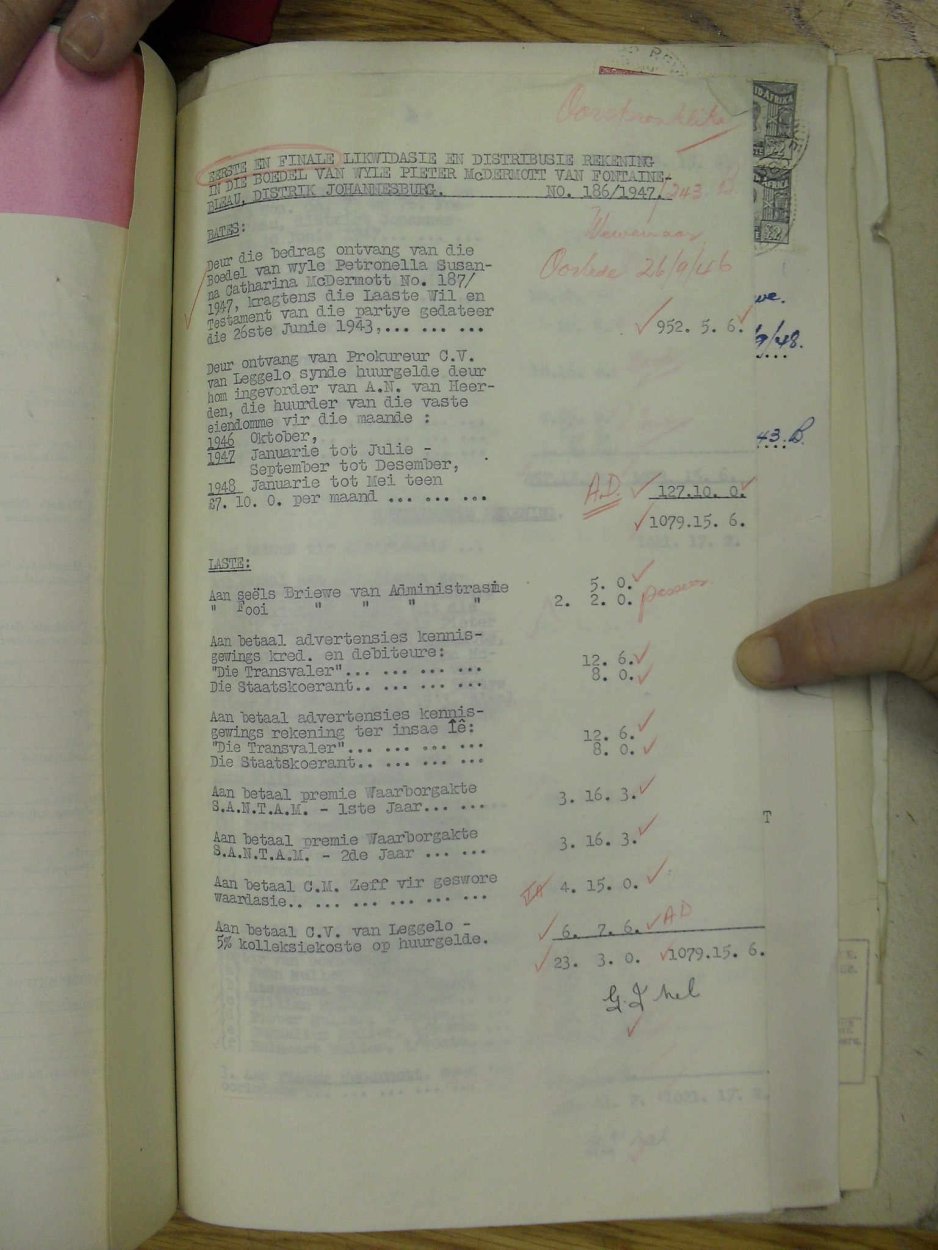 Oorspronklike
EERSTE EN FINALE LIKWIDASIE EN DISTRIBUSIE REKENING
IN DIE BOEDEL VAN WYLE PIETER McDERMOTT VAN FONTAINE-
BLEAU, DISTRIK JOHANNESBURG. NO. 186/1947. 1243. B
Wewenaar
BATES:
Oorlede 26/9/46
Deur die bedrag ontvang van die
Boedel van wyle Petronella Susan-
na Catharina McDermott No. 187/
1947, kragtens die Laaste Wil en
Testament van die partye gedateer
die 26ste Junie 1943,... ... ... 952. 5. 6.
Deur ontvang van Prokureur C.V.
van Leggelo synde huurgelde deur
hom ingevorder van A.N. van Heer-
den, die huurder van die vaste
eiendomme vir die maande :
1946 Oktober,
1947 Januarie tot Julie -
September tot Desember,
1948 Januarie tot Mei teen
£7. 10. 0. per maand ... ... ... A.D. 127.10. 0.
1079.15. 6.
LASTE:
Aan seëls Briewe van Administrasie 5. 0.
" Fooi " " " " 2. 2. 0.
Aan betaal advertensies kennis-
gewings kred. en debiteure:
"Die Transvaler"... ... ... ... 12. 6.
Die Staatskoerant.. ... ... ... 8. 0.
Aan betaal advertensies kennis-
gewings rekening ter insae lê:
"Die Transvaler"... ... ... ... 12. 6.
Die Staatskoerant.. ... ... ... 8. 0.
Aan betaal premie Waarborgakte
S.A.N.T.A.M. - 1ste Jaar... ... 3. 16. 3.
Aan betaal premie Waarborgakte
S.A.N.T.A.M. - 2de Jaar ... ... 3. 16. 3.
T
Aan betaal C.M. Zeff vir geswore
waardasie.. ... ... ... ... ... 4. 15. 0.
Aan betaal C.V. van Leggelo -
5% kolleksiekoste op huurgelde. 6. 7. 6. AD
23. 3. 0. 1079.15. 6.
G.J. Nel
we.
9/48.
43. B.